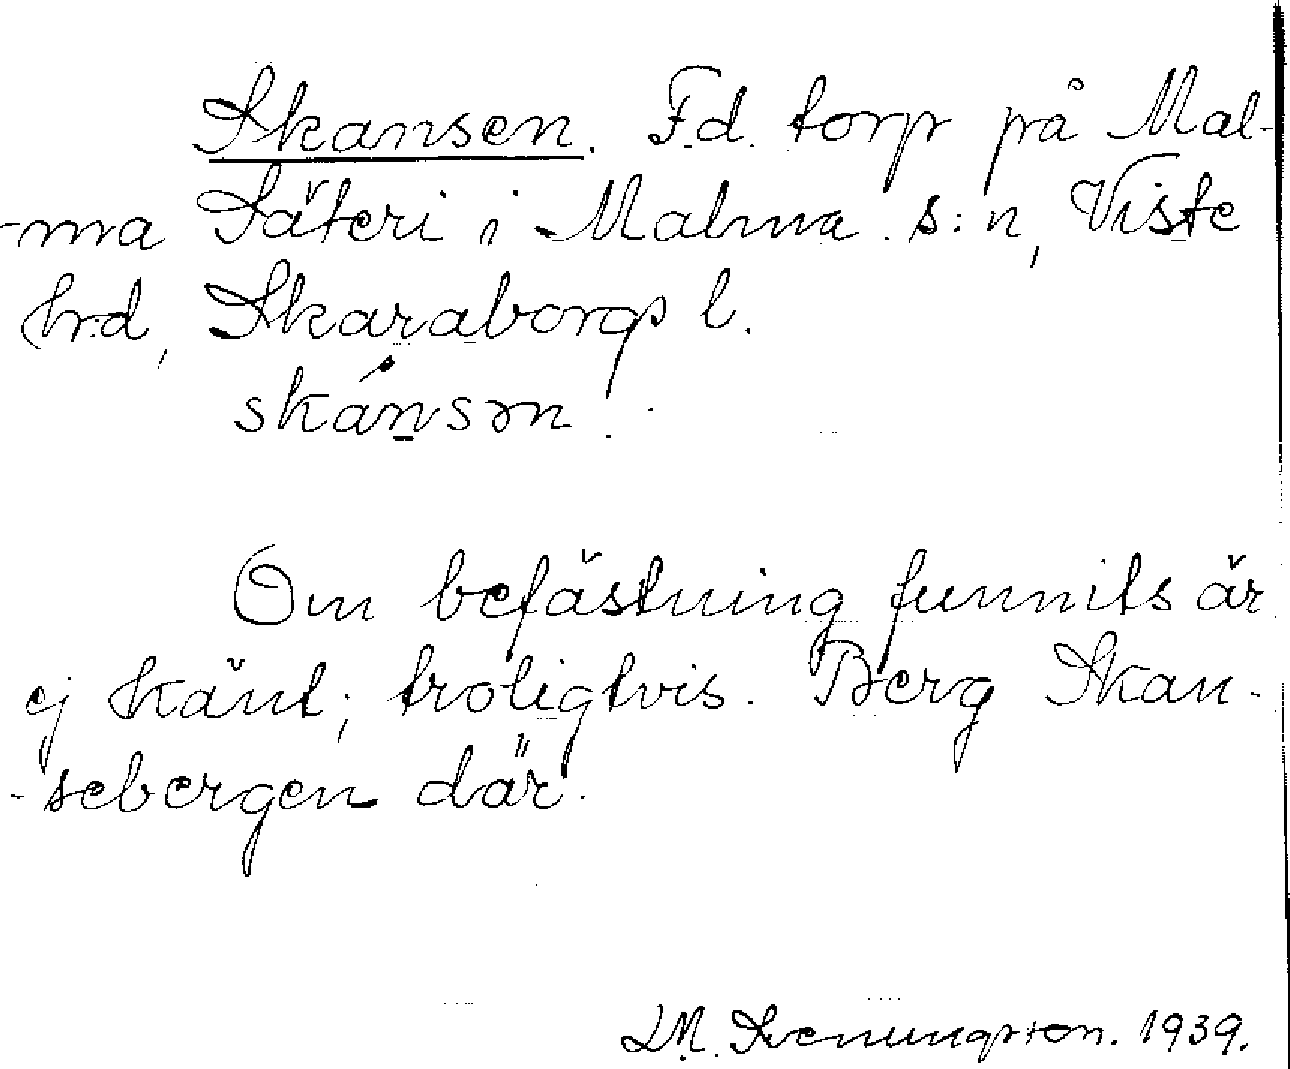 Skansen. F.d. torp på Mal-
-ma Säteri i Malma s:n, Viste
hrd, Skaraborgs l.
skánsən.
Om befästning funnits är
ej känt; troligtvis. Berg Skan-
-sebergen där.
LM. Svenungsson. 1939.